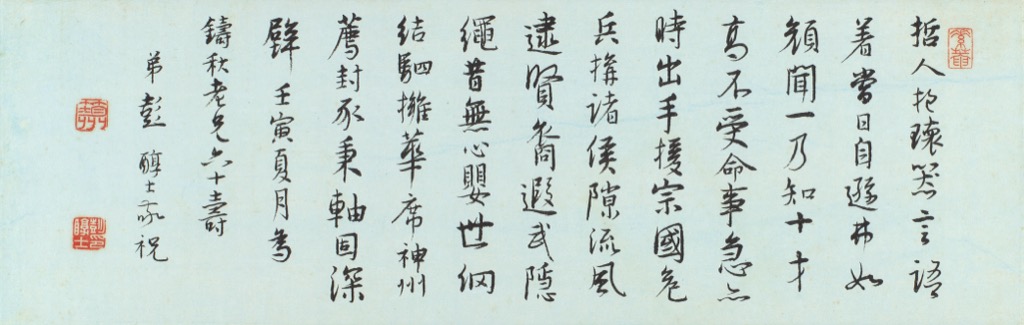 哲人抱瓌器言語
着當日自遜弗如
顏聞一乃知十才
高不受命事急亦
時出手援宗國危
兵搆諸侯隙流風
逮賢裔遐武隱
繩昔無心嬰世網
結駟擁華席神州
薦封豕秉軸固深
壬寅夏月為
鑄秋老兄六十壽
弟彭醇士敬祝
彭印醇士